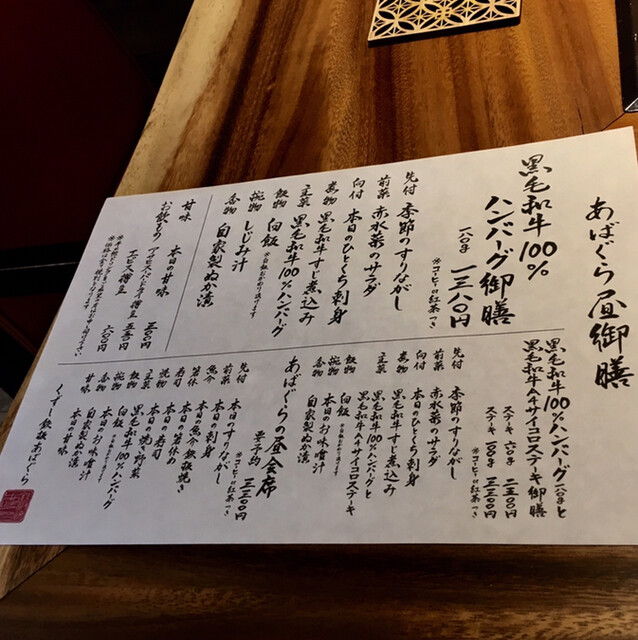 あばぐら昼御膳
黒毛和牛100%
ハンバーグ御膳
一八〇g 一三八〇円
※コーヒーor紅茶つき
先付 季節のすりながし
前菜 赤水菜のサラダ
向付 本日のひとくち刺身
煮物 黒毛和牛すじ煮込み
主菜 黒毛和牛100%ハンバーグ
飯物 白飯
椀物 しじみ汁
香物 自家製ぬか漬
甘味 本日の甘味 三五〇円
お飲もの アサヒスーパードライ樽生 五五〇円
エビス樽生 六〇〇円
黒毛和牛100%ハンバーグ一八〇gと
黒毛和牛A4サイコロステーキ御膳
ステーキ 六〇g 二二五〇円
ステーキ 一〇〇g 三三五〇円
※コーヒーor紅茶つき
先付 季節のすりながし
前菜 赤水菜のサラダ
向付 本日のひとくち刺身
煮物 黒毛和牛すじ煮込み
主菜 黒毛和牛100%ハンバーグと
黒毛和牛A4サイコロステーキ
飯物 白飯
椀物 本日のお味噌汁
香物 自家製ぬか漬
あばぐらの昼会席
要予約 三三〇〇円
※コーヒーor紅茶つき
先付 本日のすりながし
前菜 本日の刺身
魚介 本日の魚介鉄板焼き
箸休 本日の箸休め
寿司 本日の寿司
焼物 黒毛和牛と焼き野菜
主菜 黒毛和牛100%ハンバーグ
飯物 白飯
椀物 本日のお味噌汁
香物 自家製ぬか漬
甘味 本日の甘味
くずし鉄板あばぐら